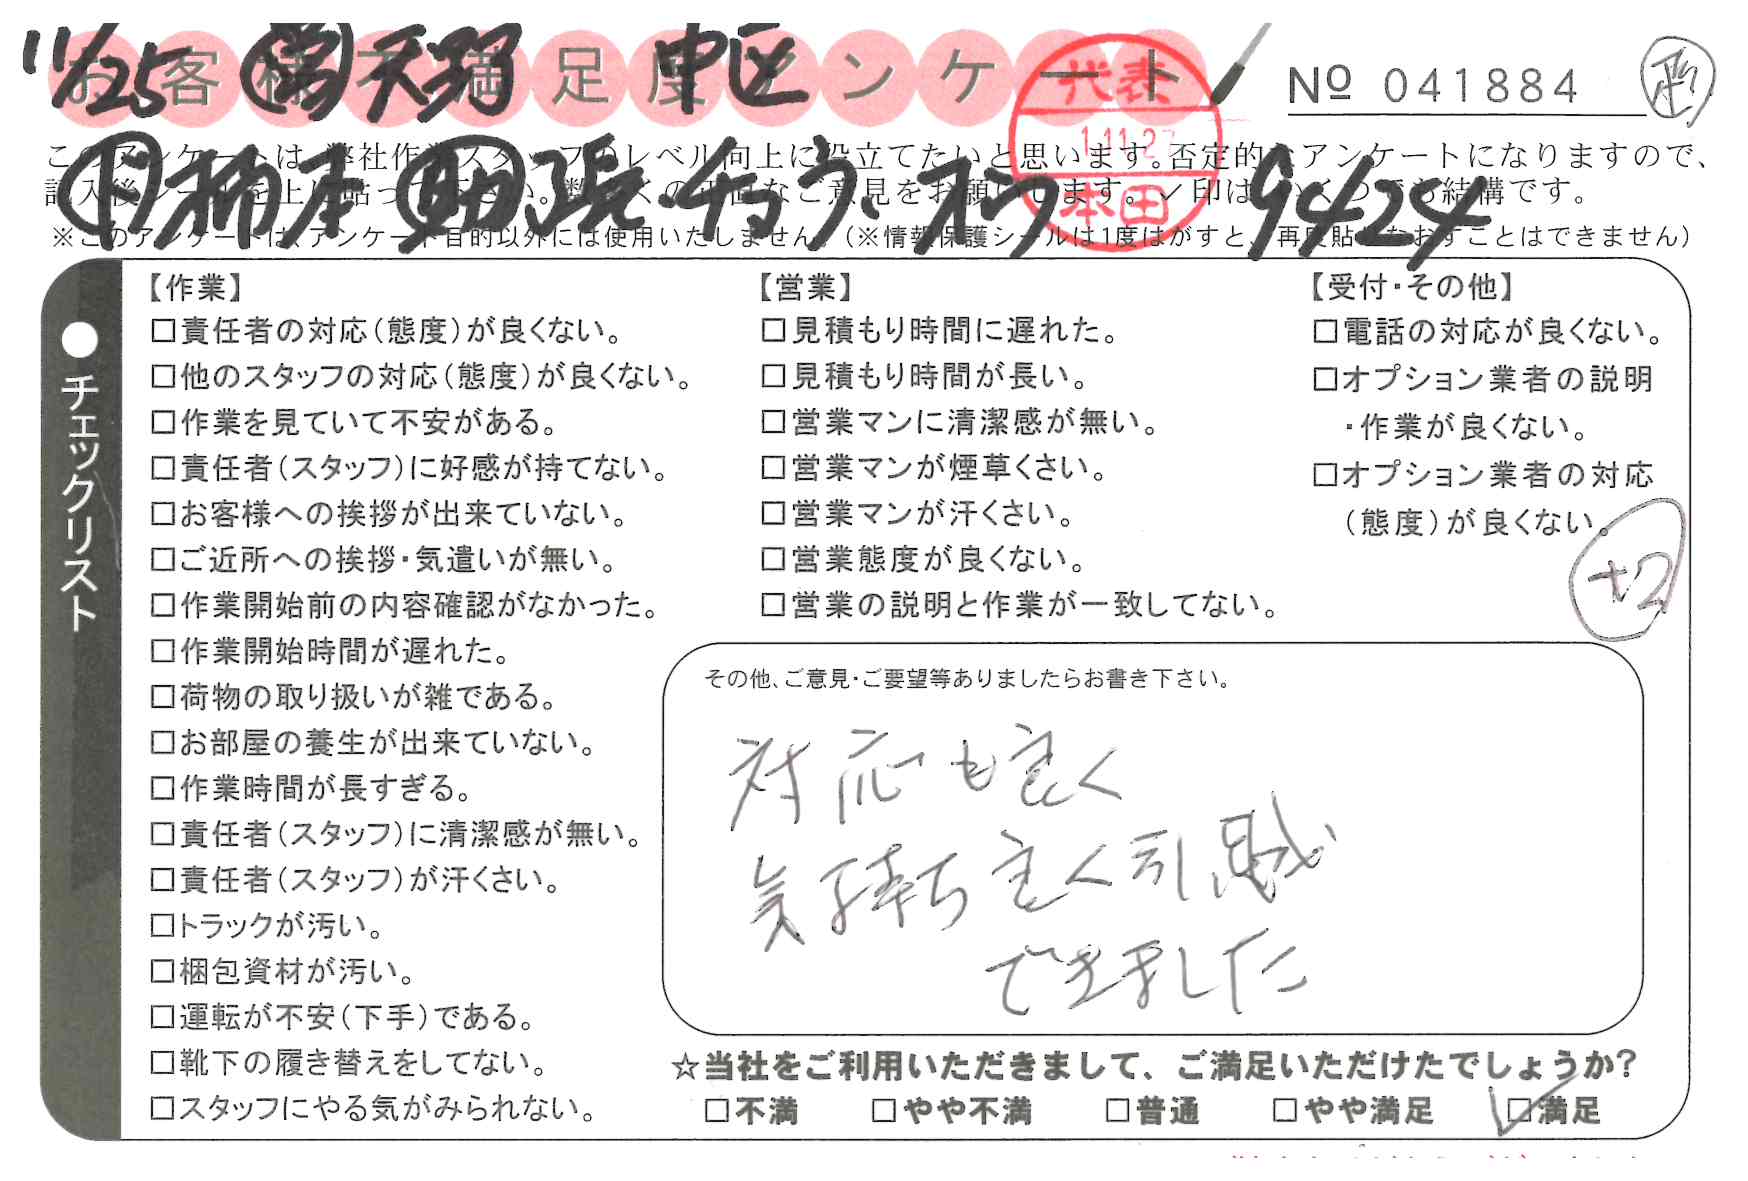 お客様不満足度アンケート
11/25 営 天野 中区
代表 1.11.27 本田
№ 041884
このアンケートは、弊社作業スタッフのレベル向上に役立てたいと思います。否定的なアンケートになりますので、
記入後シールを上に貼って下さい。数多くの正直なご意見をお願いします。✓印はいくつでも結構です。
9424
※このアンケートは、アンケート目的以外には使用いたしません。(※情報保護シールは1度はがすと、再度貼りなおすことはできません)
●チェックリスト
【作業】
□責任者の対応(態度)が良くない。
□他のスタッフの対応(態度)が良くない。
□作業を見ていて不安がある。
□責任者(スタッフ)に好感が持てない。
□お客様への挨拶が出来ていない。
□ご近所への挨拶・気遣いが無い。
□作業開始前の内容確認がなかった。
□作業開始時間が遅れた。
□荷物の取り扱いが雑である。
□お部屋の養生が出来ていない。
□作業時間が長すぎる。
□責任者(スタッフ)に清潔感が無い。
□責任者(スタッフ)が汗くさい。
□トラックが汚い。
□梱包資材が汚い。
□運転が不安(下手)である。
□靴下の履き替えをしてない。
□スタッフにやる気がみられない。
【営業】
□見積もり時間に遅れた。
□見積もり時間が長い。
□営業マンに清潔感が無い。
□営業マンが煙草くさい。
□営業マンが汗くさい。
□営業態度が良くない。
□営業の説明と作業が一致してない。
【受付・その他】
□電話の対応が良くない。
□オプション業者の説明
・作業が良くない。
□オプション業者の対応
(態度)が良くない。
+2
その他、ご意見・ご要望等ありましたらお書き下さい。
対応も良く
気持ち良く引越
できました
☆当社をご利用いただきまして、ご満足いただけたでしょうか?
□不満 □やや不満 □普通 □やや満足 ☑満足